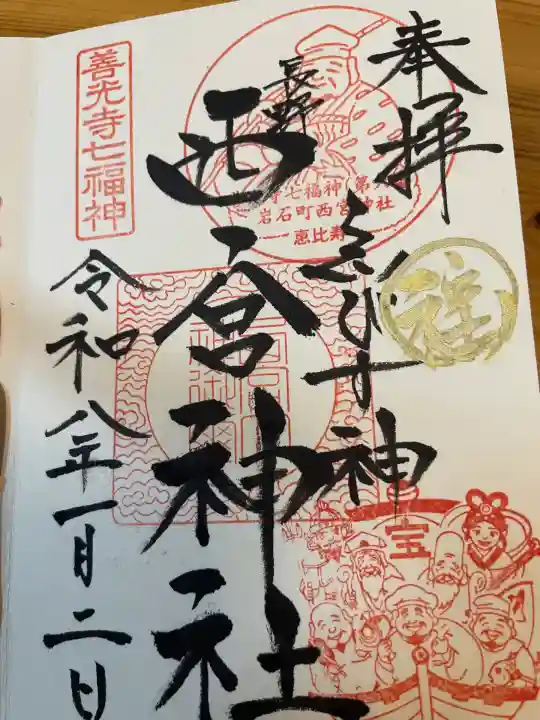 奉拝
ゑびす神
長野
西宮神社
令和八年一月二日
善光寺七福神
寺七福神
岩石町西宮神社
恵比寿
宝